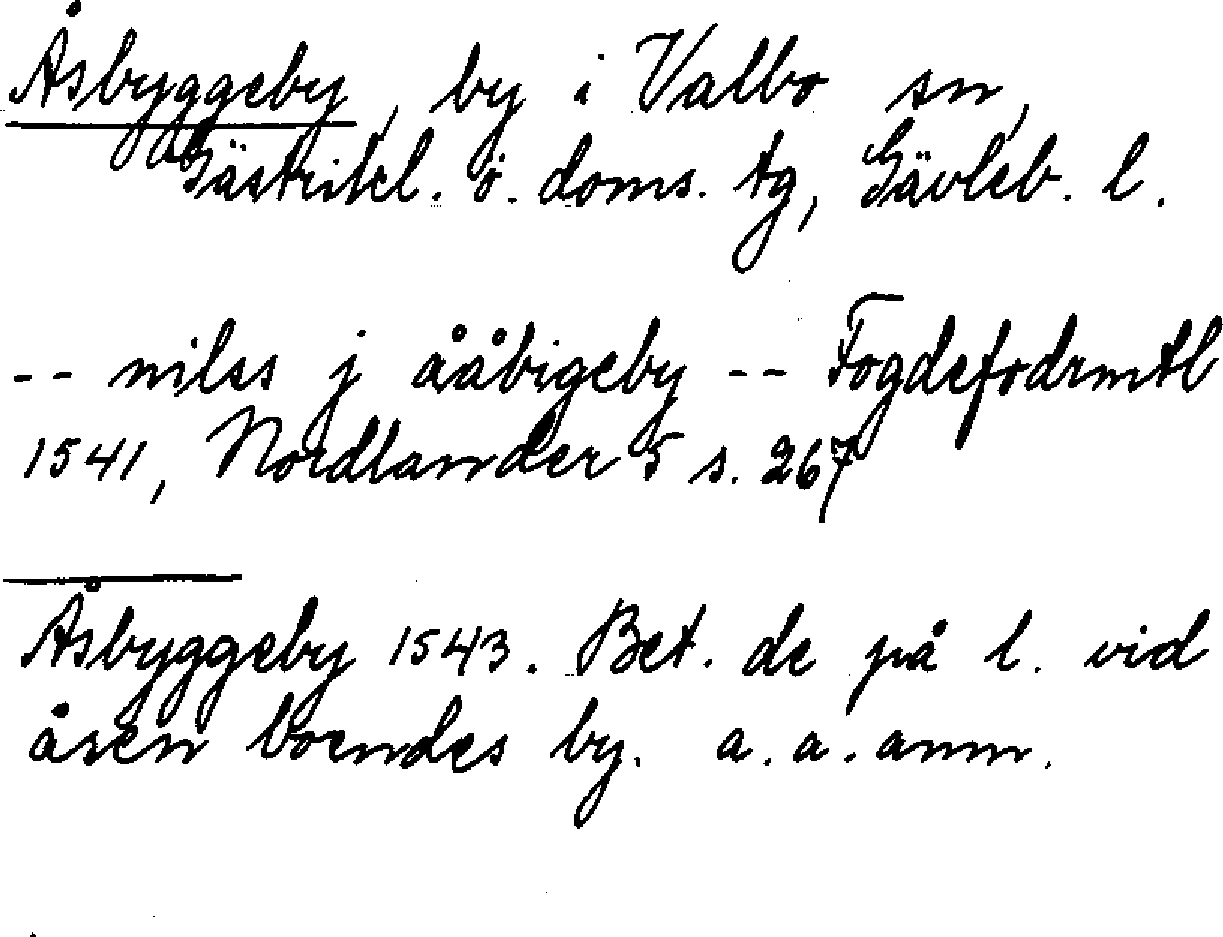 Åsbyggeby, by i Valbo sn,
Gästrikl. ö. doms. tg, Gävleb. l.
-- nilss j ååbigeby -- Fogdefodrmtl
1541, Nordlander 5 s. 267
Åsbyggeby 1543. Bet. de på l. vid
åsen boendes by. a. a. anm.